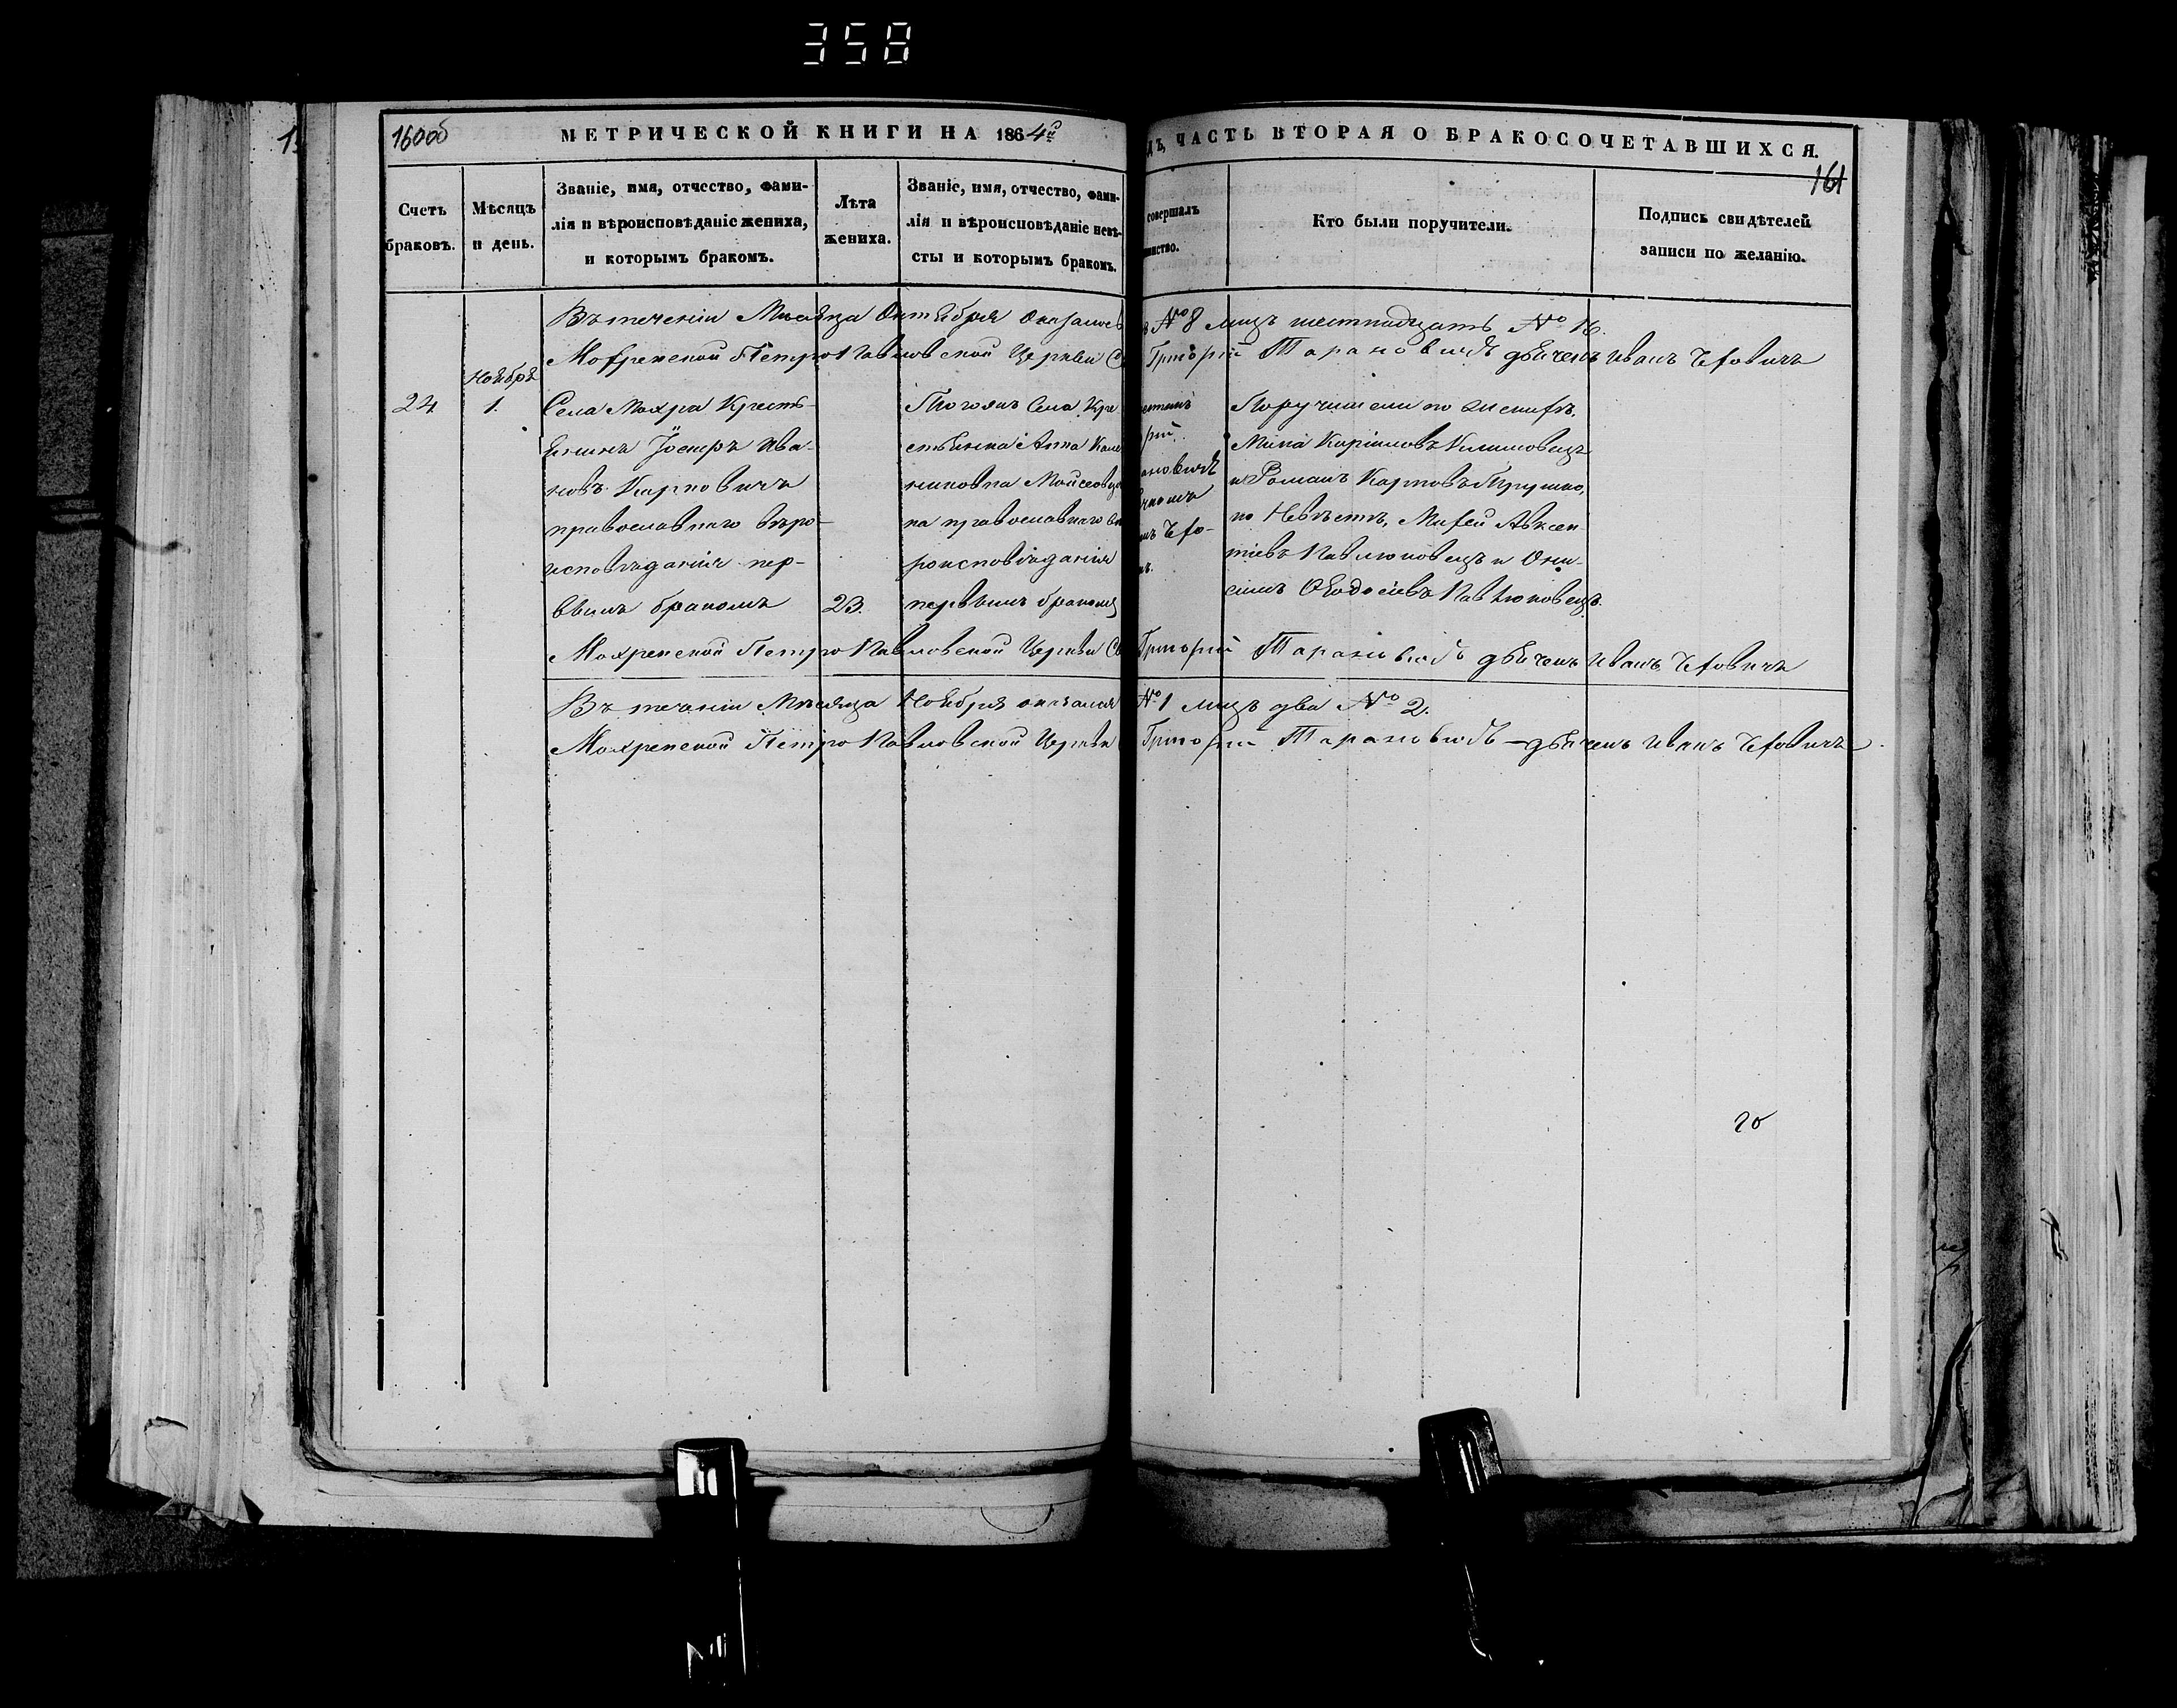 358
160об
МЕТРИЧЕСКОЙ КНИГИ НА 1864й
ДЪ, ЧАСТЬ ВТОРАЯ О БРАКОСОЧЕТАВШИХСЯ.
161
Счетъ
браковъ.
Мѣсяцъ
и день.
Званіе, имя, отчество, фами-
лія и вѣроисповѣданіе жениха,
и которымъ бракомъ.
Лѣта
жениха.
Званіе, имя, отчество, фами-
лія и вѣроисповѣданіе невѣ-
сты и которымъ бракомъ.
совершалъ
инство.
Кто были поручители.
Подпись свидѣтелей
записи по желанію.
Въ теченіи Мѣсяца Октября оказалось
№ 8 лицъ шестнадцать № 16.
Мохренской Петро Павловской Церкви С
Григорій Тарановичъ дьячекъ Иванъ
24
Ноября
1.
Села Мохра Кресть-
янинъ Іосифъ Ива-
новъ Карповичъ
православнаго вѣро-
исповѣданія пер-
вымъ бракомъ
23.
тогожъ Села Кре
стьянка Анна
Мойсеовц
на православнаго вѣ
роисповѣданія
первымъ бракомъ
рій
ановичъ
Поручители по Женихѣ,
Мина Кириловъ Климовецъ
и Романъ Карповъ
по Невѣстѣ, Авксен-
тіевъ Павлюковецъ и Они-
симъ Ѳеодосіевъ Павлюковецъ.
Мохренской Петро Павловской Церкви Св
Григорій Тарановичъ дьячекъ Иванъ
Въ теченіи Мѣсяца Ноября оказался
№ 1 лицъ два № 2.
Мохренской Петро Павловской Церкви
Григорій Тарановичъ дьячекъ Иванъ